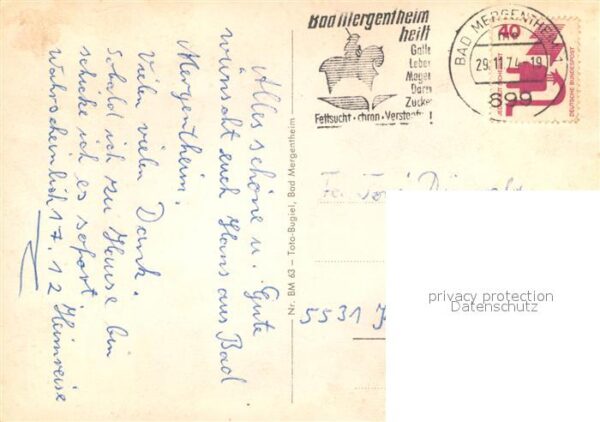 Alles schöne u. Gute
wünscht euch Hans aus Bad
Mergentheim.
Vielen vielen Dank.
Sobald ich zu Hause bin
schicke ich es sofort.
Wahrscheinlich 17.12 Heimreise
Nr. BM 63 – Foto-Bugiel, Bad Mergentheim
Bad Mergentheim
heilt
Galle
Leber
Magen
Darm
Zucker
Fettsucht · chron · Verstopfg !
BAD MERGENTHEIM
29.11.74-19
699
40
DEUTSCHE BUNDESPOST
5531
privacy protection
Datenschutz